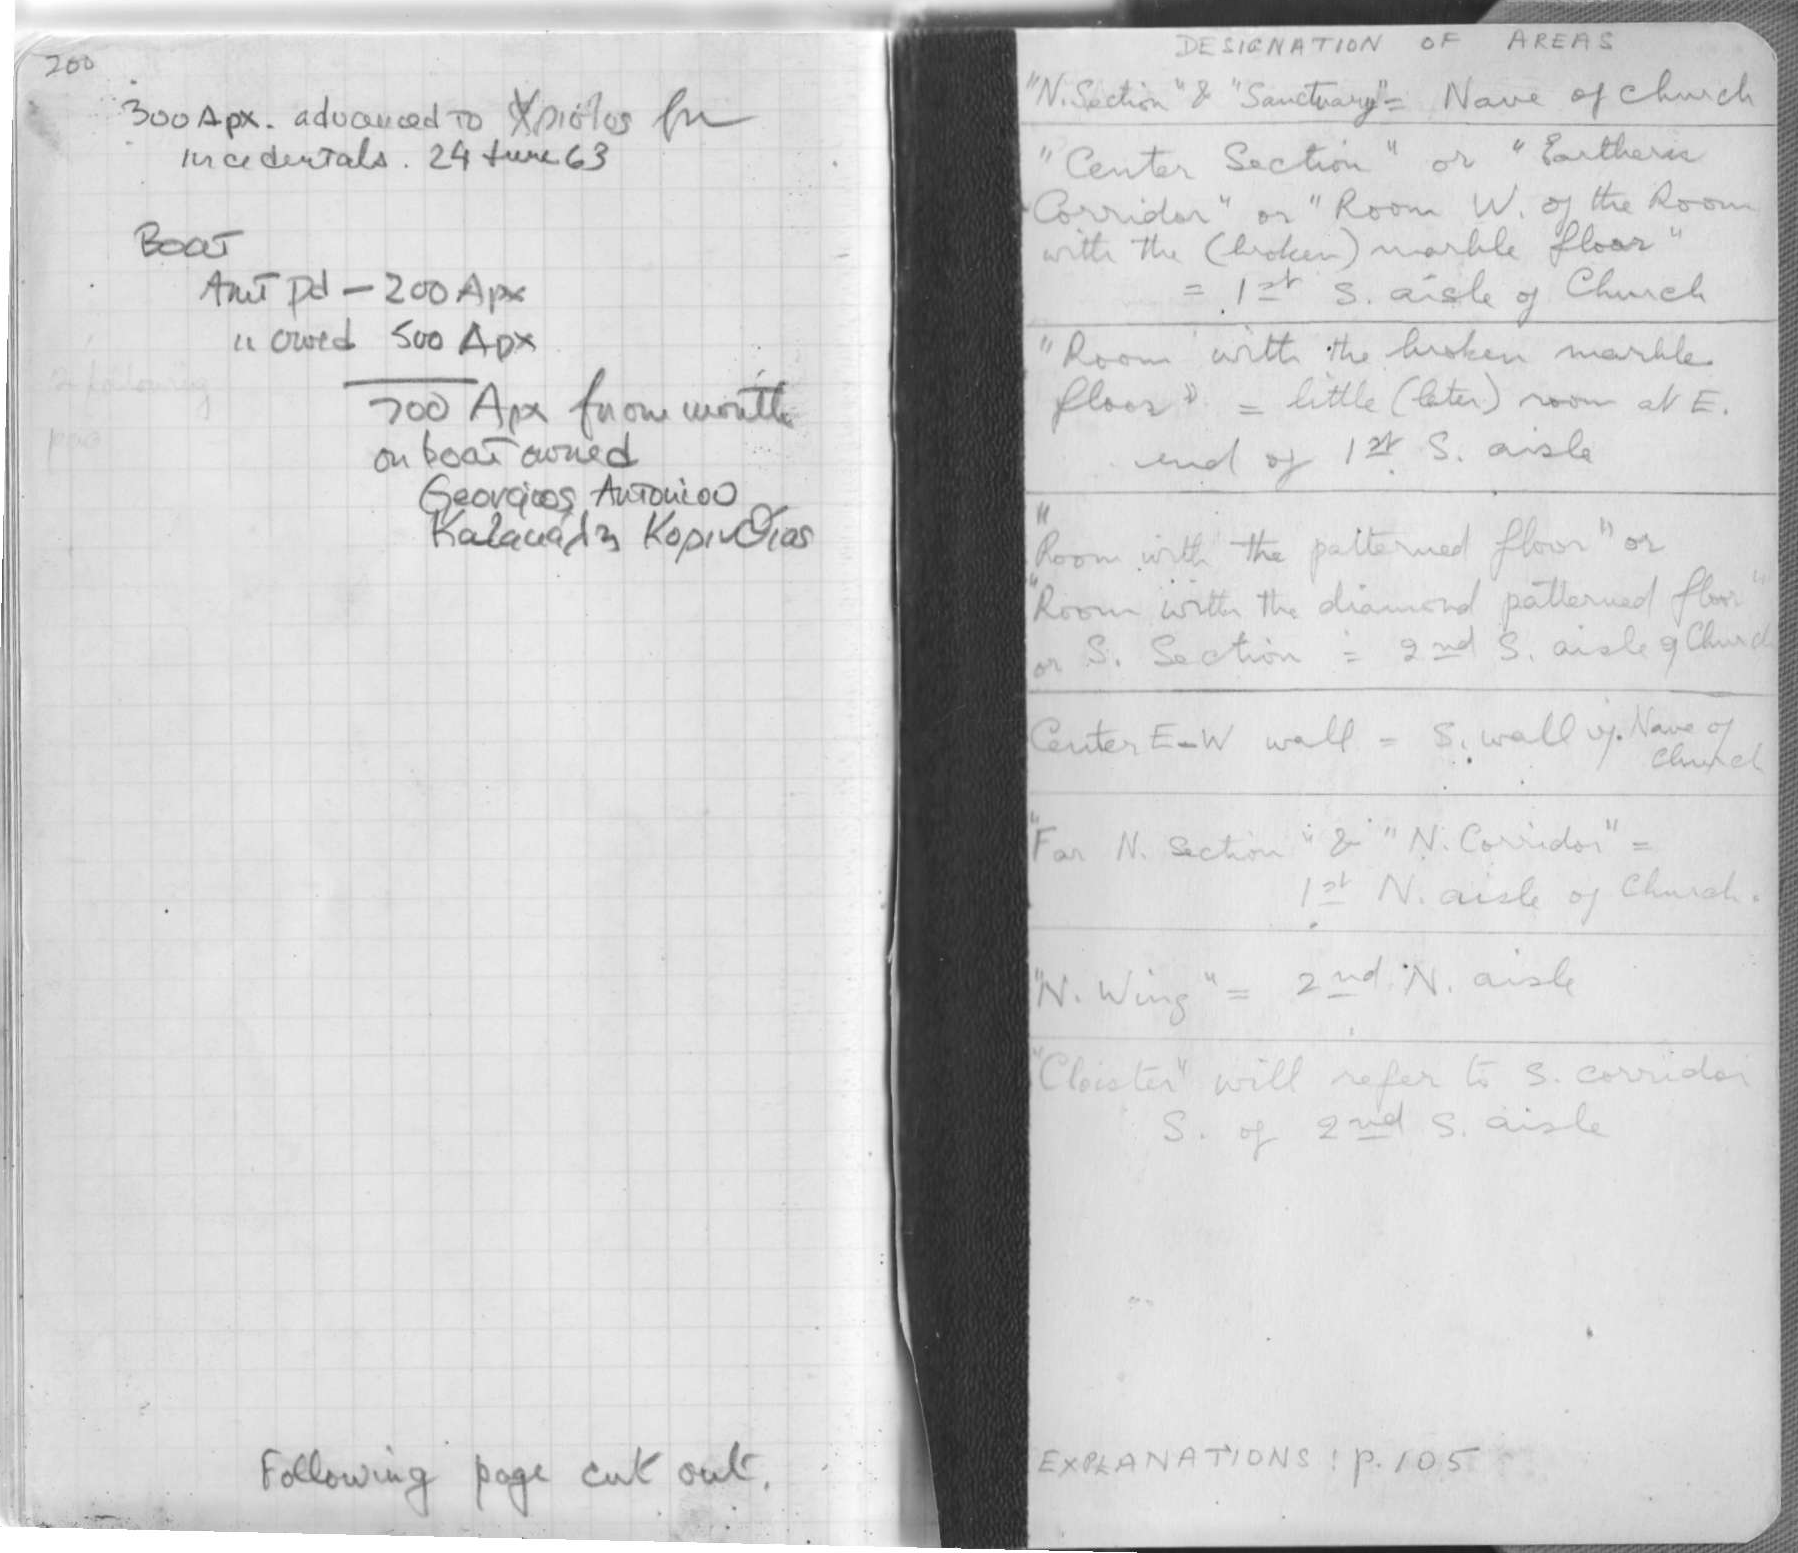 200
300 Δρχ. advanced to Χρίστος for
incidentals. 24 June 63
Boat
Amt pd — 200 Δρχ
" owed 500 Δρχ
700 Δρχ for one month
on boat owned
Georgios Antoniou
Κορινθίας
Following page cut out.
DESIGNATION OF AREAS
"N. Section" & "Sanctuary" = Nave of church
"Center Section" or "Earthern
Corridor" or "Room W. of the Room
with the (broken) marble floor"
= 1st S. aisle of Church
"Room with the broken marble
floor" = little (later) room at E.
end of 1st S. aisle
"Room with the patterned floor" or
"Room with the diamond patterned floor"
or S. Section = 2nd S. aisle of Church
Center E-W wall = S. wall of Nave of
Church
"Far N. Section" & "N. Corridor" =
1st N. aisle of Church.
"N. Wing" = 2nd N. aisle
"Cloister" will refer to S. corridor
S. of 2nd S. aisle
EXPLANATIONS: p. 105